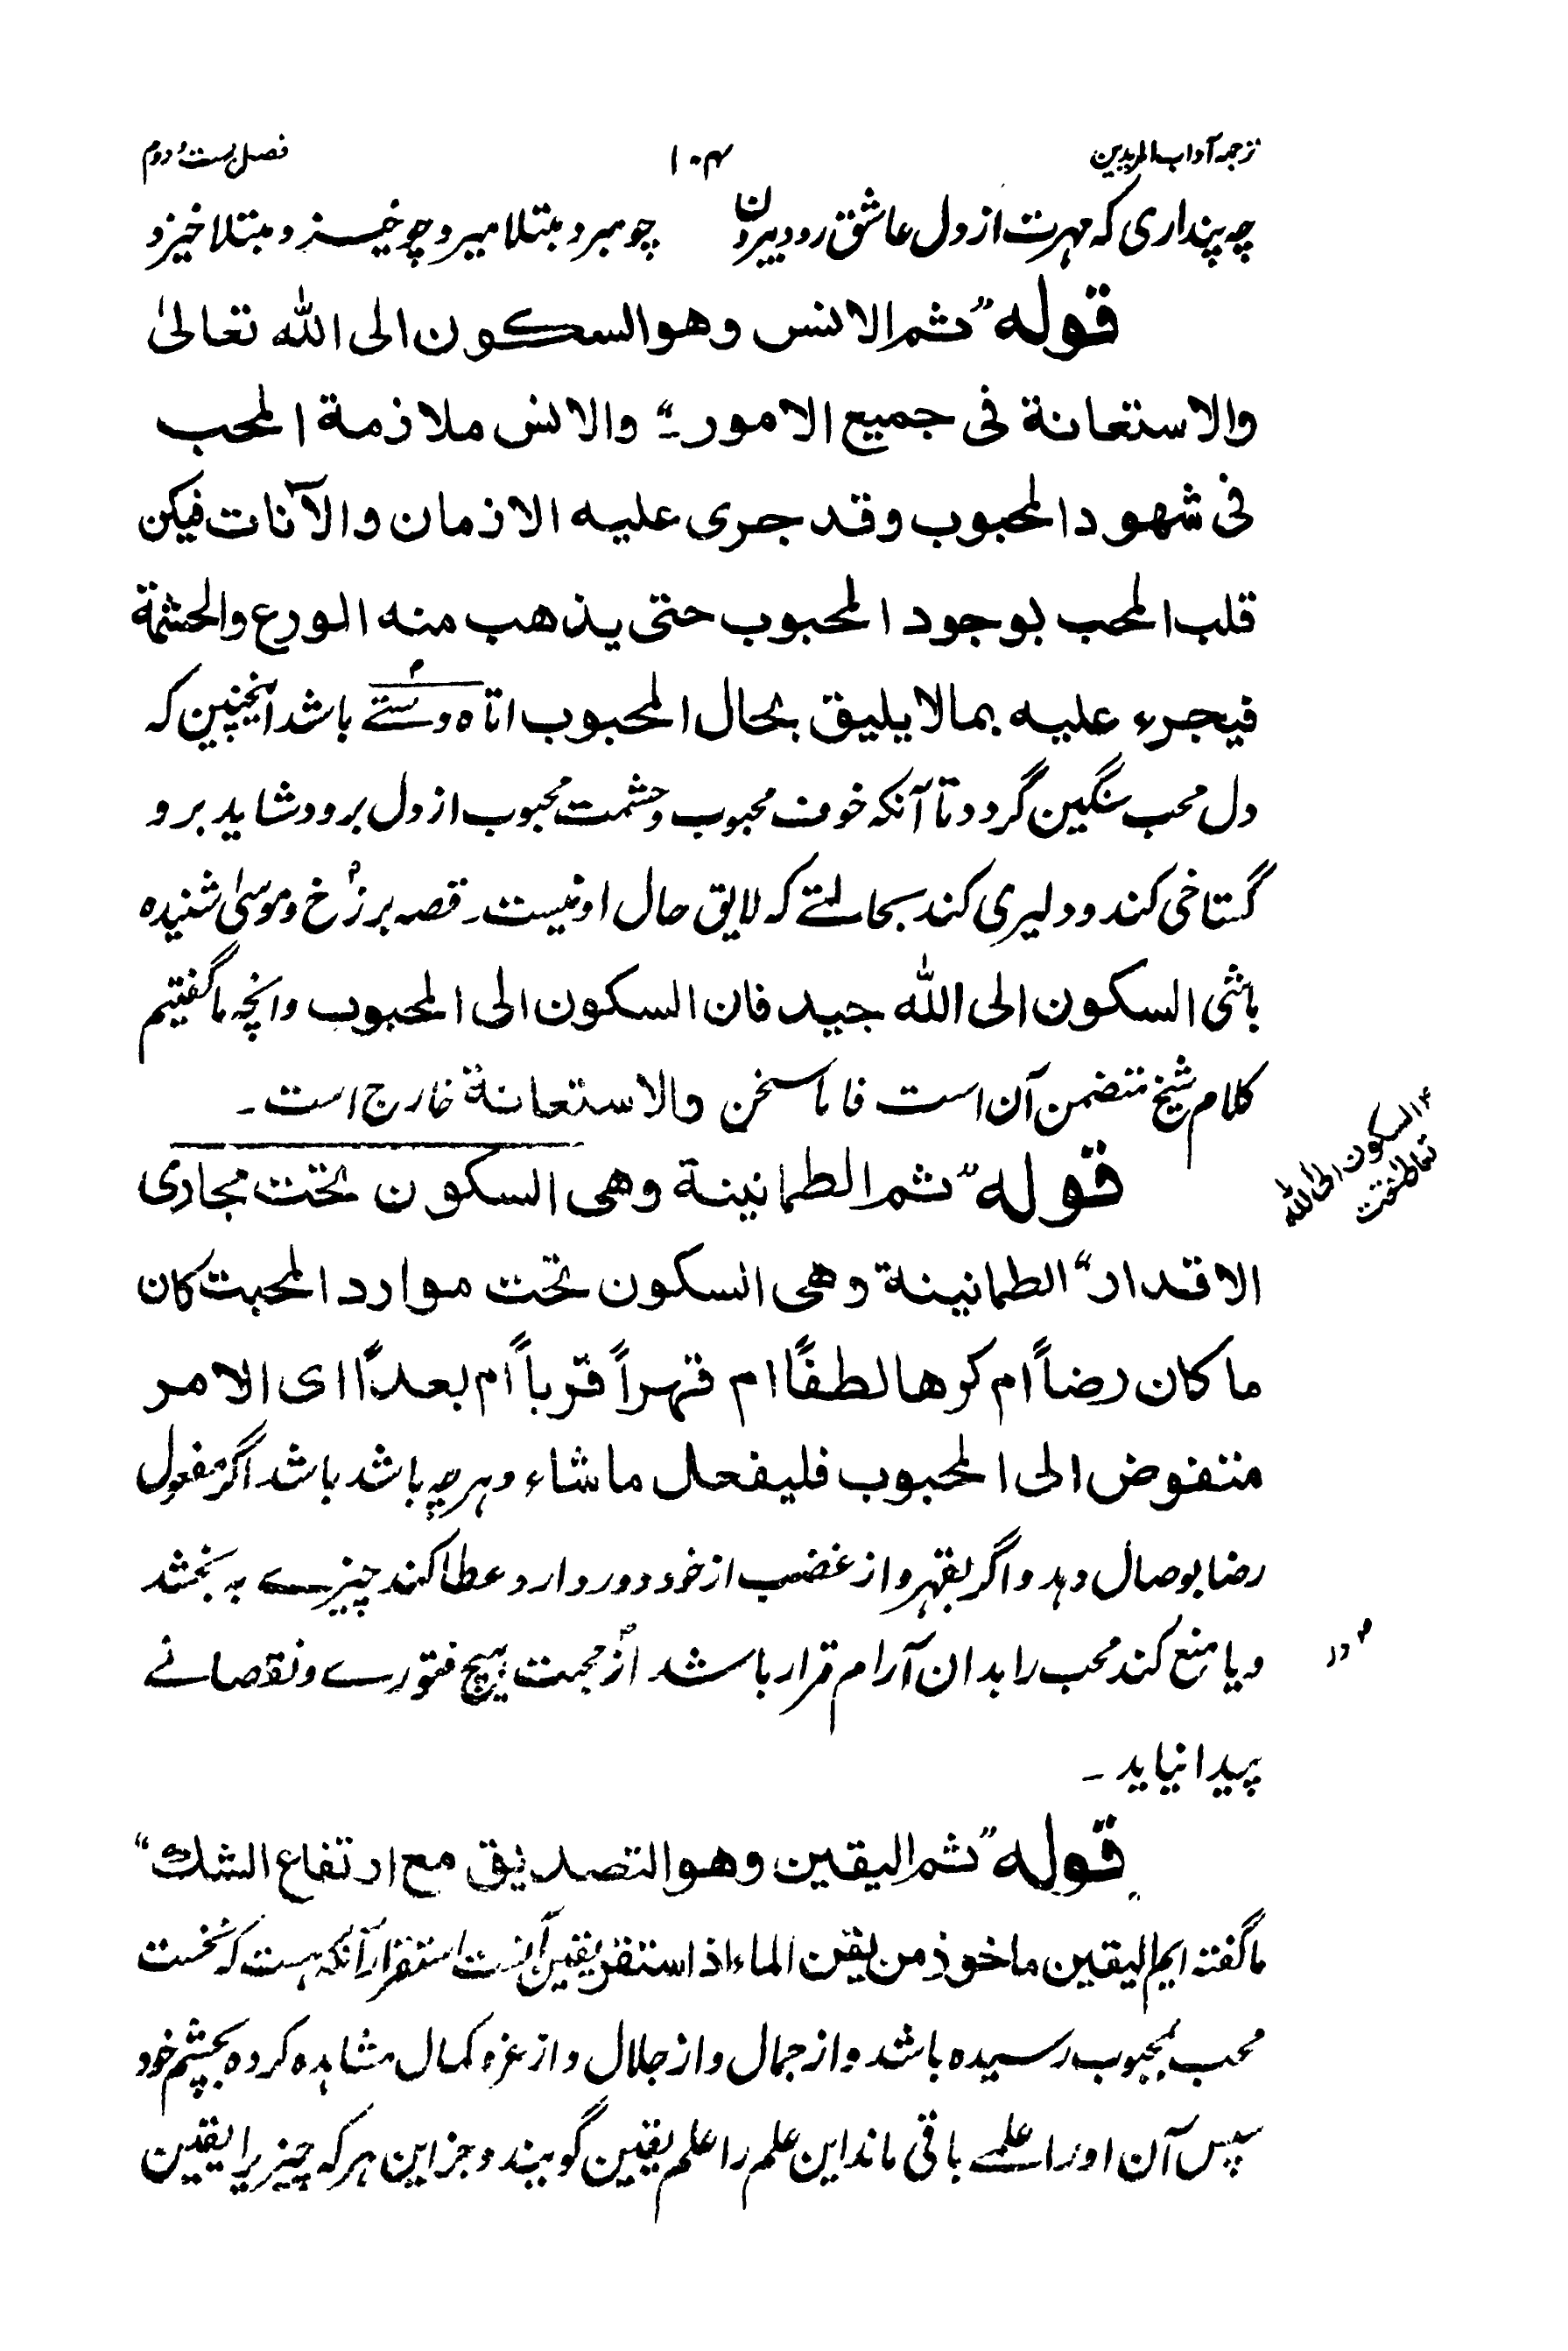 ترجمہ آداب المریدین ۱۰۴ فصل بست و دوم
چہ پنداری کہ مہرت از دل عاشق رود بیرون چو میرد مبتلا میرد چو خیزد مبتلا خیزد
قوله "ثم الانس وهو السكون الى الله تعالىٰ
والاستعانة فى جميع الامور۔" والانس ملازمة المحب
فى شهود المحبوب وقد جرى عليه الازمان والآنات فيكن
قلب المحب بوجود المحبوب حتى يذهب منه الورع والحشمة
فيجرء عليه بمالا يليق بحال المحبوب اتاه وستے باشد اینچنین کہ
دل محب سنگین گردد تا آنکہ خوف محبوب و حشمت محبوب از دل برود شاید برو
گستاخی کند و دلیری کند بحالتے کہ لایق حال او نیست۔ قصہ برزخ و موسیٰ شنیدہ
باشی السكون الى الله جيد فان السكون الى المحبوب وانچہ ما گفتیم
کلام شیخ متضمن آن است فاما سخن والاستعانة خارج است۔
۱۲ السکون الی اللہ
قوله "ثم الطمانينة وهى السكون تحت مجارى
الاقدار" الطمانينة وهى السكون تحت موارد المحبت كان
ما كان رضاً ام كرها لطفًا ام قهراً قرباً ام بعداً اى الامر
متفوض الى المحبوب فليفعل ما شاء وہرچہ باشد باشد اگر مفعول
رضا بوصال دہد و اگر بقہر و از غضب از خود دور دارد عطا کند چیزے بہ بخشد
ویا منع کند محب را بدان آرام قرار باشد از محبت ہیچ فتورے و نقصانے
م در
پیدا نیاید۔
قوله "ثم اليقين وهو التصديق مع ارتفاع الشك"
ما گفتہ ایم الیقین ماخوذ من یقن الماء اذا استقر یقین آنست استقرار آنکہ ہست کہ نخست
محب بمحبوب رسیدہ باشد و از جمال و از جلال و از عزہ کمال مشاہدہ کردہ بچشم خود
سپس آن اورا علمے باقی ماند این علم را علم یقین گویند و جز این ہر کہ چیزیرا یقین